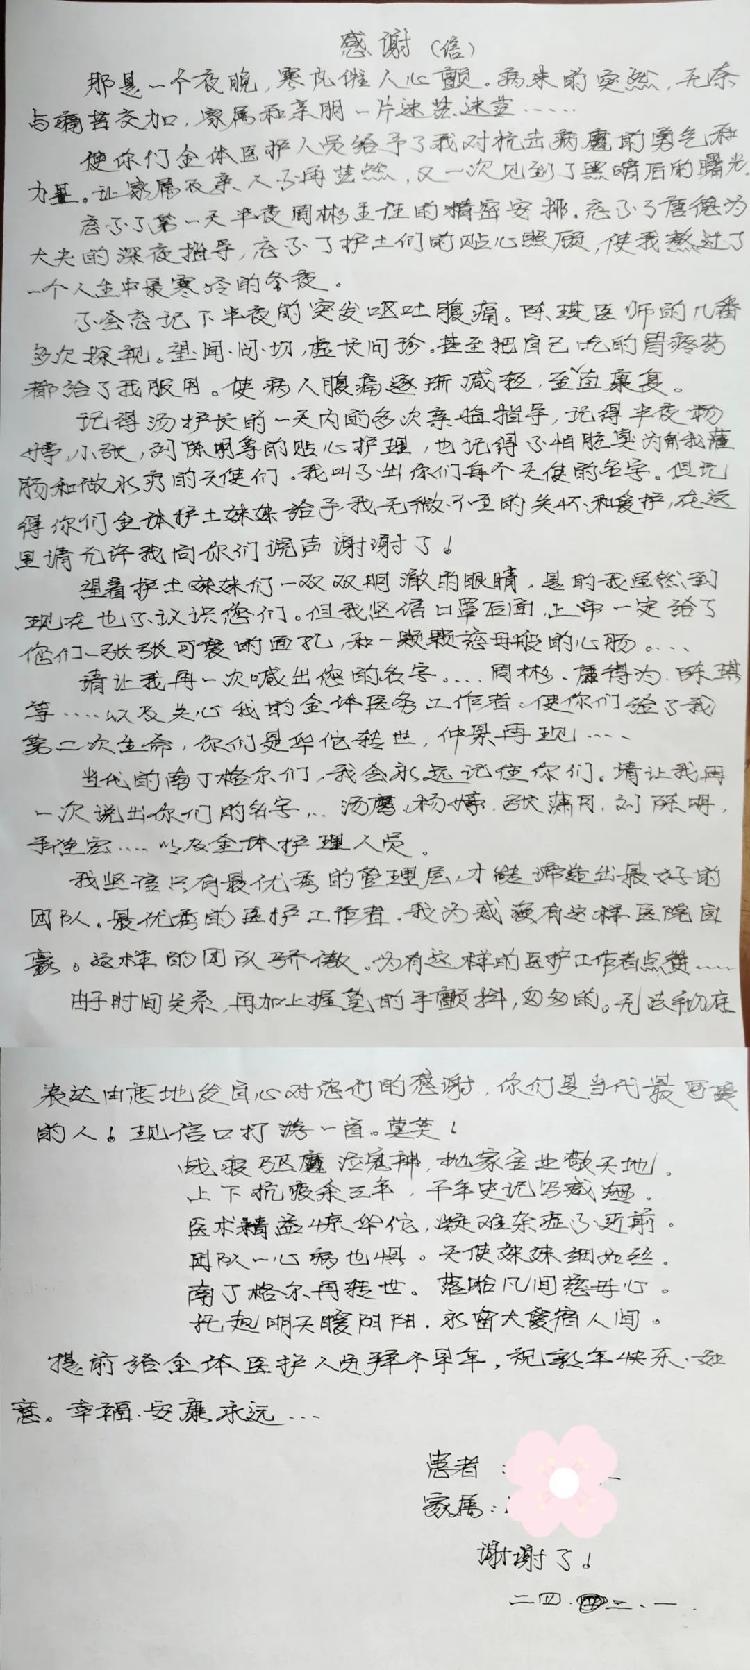 感谢(信)
那是一个夜晚，寒风催人心颤。病来的突然，无奈
与痛苦交加，家属和亲朋一片迷茫迷茫……
使你们全体医护人员给予了我对抗击病魔的勇气和
力量。让家属及亲人不再茫然，又一次见到了黑暗后的曙光。
忘不了第一天半夜周彬主任的精密安排。忘不了唐德为
大夫的深夜指导，忘不了护士们的贴心照顾，使我熬过了
一个人生中最寒冷的冬夜。
不会忘记下半夜的突发呕吐腹痛。陈琪医师的几番
多次探视。望·闻·问·切，虚长问诊。甚至把自己吃的胃疼药
都给了我服用。使病人腹痛逐渐减轻，至直康复。
记得汤护长的一天内的多次亲临指导，记得半夜杨
婷，小张，刘陈明等的贴心护理，也记得不怕脏臭为我灌
肠和做水疗的天使们。我叫不出你们每个天使的名字。但记
得你们全体护士妹妹给予我无微不至的关怀和爱护，在这
里请允许我向你们说声谢谢了！
望着护士妹妹们一双双明澈的眼睛，是的我虽然到
现在也不认识您们。但我坚信口罩后面，上帝一定给了
您们一张张可爱的面孔，和一颗颗慈母般的心肠。……
请让我再一次喊出您的名字……周彬．唐得为．陈琪
等……以及关心我的全体医务工作者。使你们给了我
第二次生命，你们是华佗转世，仲景再现……
当代的南丁格尔们，我会永远记住你们。请让我再
一次说出你们的名字…汤鹰，杨婷．张蒲月．刘陈明，
……以及全体护理人员。
我坚信只有最优秀的管理层，才能缔造出最好的
团队。最优秀的医护工作者．我为咸藏有这样医院自
豪。这样的团队骄傲。为有这样的医护工作者点赞……
由于时间关系，再加上握笔的手颤抖，匆匆的。无法
表达由衷地发自心对您们的感谢，你们是当代最可爱
的人！现信口打游一首。莫笑！
战疫驱魔泣鬼神，抛家舍业敬天地。
上下抗疫余三年，千年史记写咸
医术精益惊华佗，疑难杂症不近前。
团队一心病也惧。天使妹妹细如丝．
南丁格尔再转世。落临凡间慈母心。
托起明天暖阴阳．永留大爱宿人间。
提前给全体医护人员拜个早年，祝新年快乐·如
意。幸福·安康永远…
患者：
家属：
谢谢了！
二四．二．一．